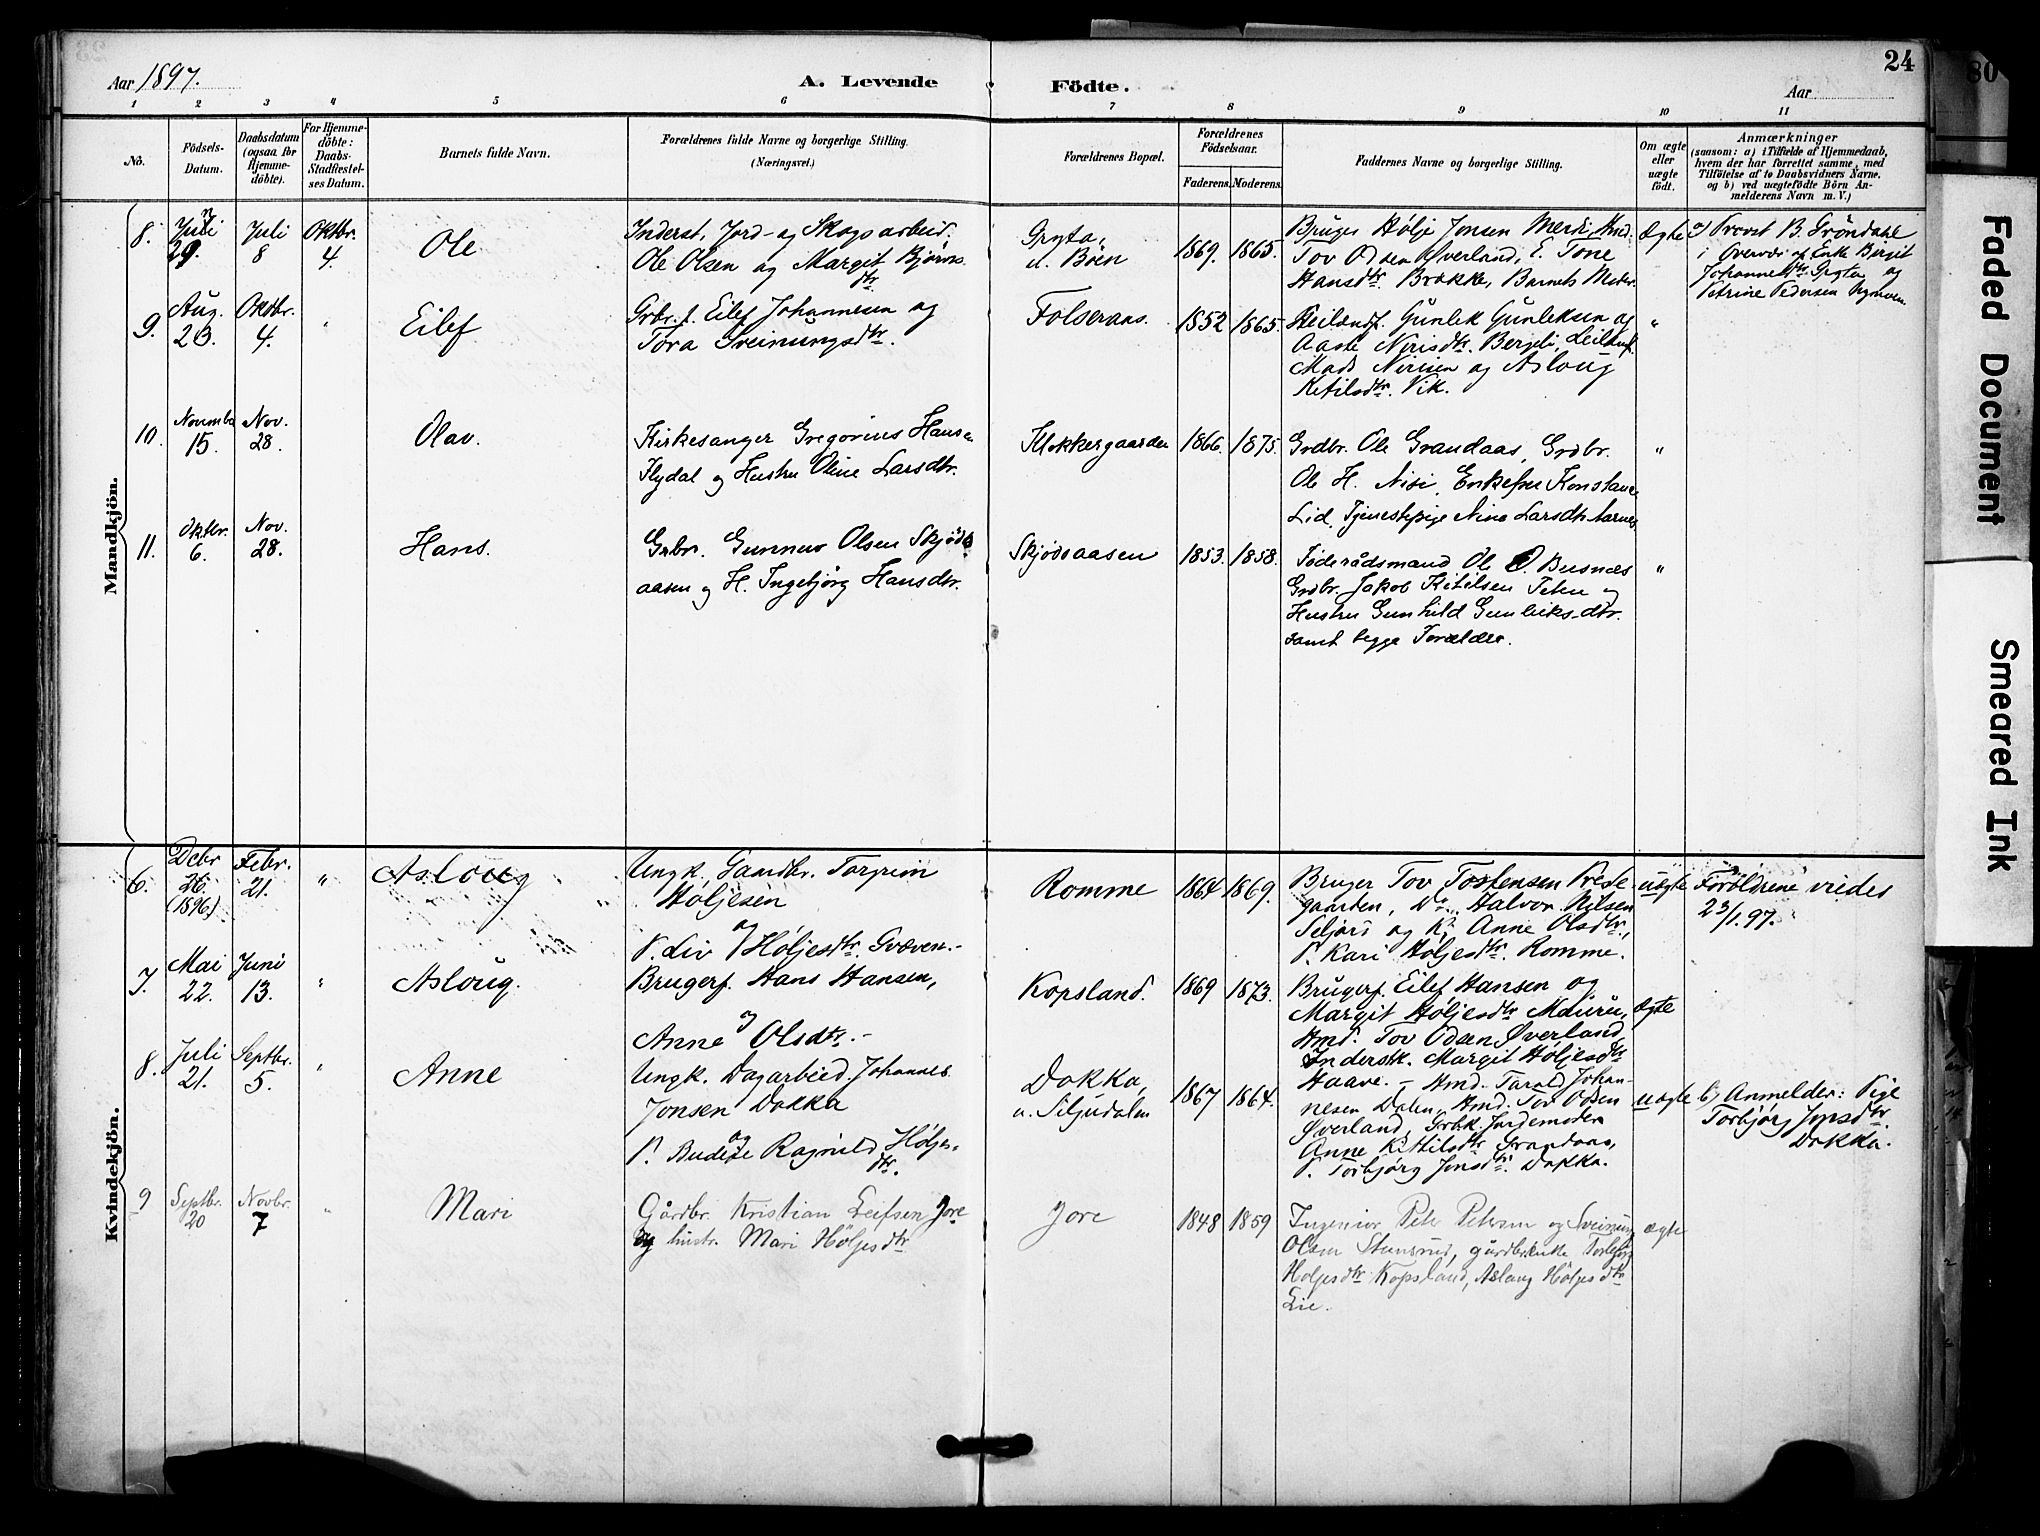 Aar 1897.
A. Levende
Födte.
Aar
24
1 2 3 4 5 6 7 8 9 10 11
No.
Födsels-
Datum.
Daabsdatum
(ogsaa for
Hjemme-
döbte).
For Hjemme-
döbte:
Daabs-
Stadfæstel-
ses Datum.
Barnets fulde Navn.
Forældrenes fulde Navne og borgerlige Stilling.
(Næringsvei.)
Forældrenes Bopæl.
Forældrenes
Födselsaar.
Faderens. Moderens.
Faddernes Navne og borgerlige Stilling.
Om ægte
eller
uægte
født.
Anmærkninger
(saasom: a) i Tilfælde af Hjemmedaab,
hvem der har forrettet samme, med
Tilföielse af to Daabsvidners Navne.
og b) ved uægtefödte Börn An-
melderens Navn m. V.)
Mandkjön.
8.
Juli
29.
Juli
8
Oktbr.
4.
Ole
Inderst, Jord- og Skogsarbeid.
Ole Olsen og Margit Bjørns-
dtr
Gryta,
u. Böen
1869. 1865.
Bruger Hølje Jonsen Merdi, Umd.
Tov Odsen Øverland, E. Tone
Hansdtr. Brekke, Barnets Moder.
Ægte
a) Provst B. Gröndahl
i Overvær af Enke Birgit
Johannesdtr. Gryta og
Petrine Pedersen
9.
Aug.
23.
Oktbr.
4.
"
Eilef
Grbr. f. Eilef Johannesen og
Tora Sveinungsdtr.
Folseraas.
1852 1865.
Leilændf. Gunlek Gunleksen og
Aaste Nirisdtr. Bergeli, Leilændf.
Mads Nirisen og Asloug
Ketilsdtr. Vik.
"
10.
Novembr
15.
Nov.
28.
Olav.
Kirkesanger Gregorius Hansen
Flydal og Hustru Oline Larsdtr.
Klokkergaarden
1866. 1875.
Grdbr. Ole Grandaas, Grdbr.
Ole H. Nisi, Enkefru Konstance
Lid, Tjenestepige Nina Larsdtr. Aarnes
"
11.
Oktbr.
6.
Nov.
28.
Hans.
Grbr. Gunnar Olsen Skjöds
aasen og H. Ingebjörg Hansdtr.
Skjödsaasen
1853. 1858.
Föderådsmand Ole O. Busnæs
Grdbr. Jakob Kitilsen Teten og
Hustru Gunhild Gunleiksdtr.
samt begge Forældre.
"
Kvindekjön.
6.
Debr
26.
(1896)
Febr.
21.
"
Asloug
Ungk. Gaardbr. Torgrim
Höljesen
og
P. Liv Höljesdtr. Sväven.-
Romme
1864 1869.
Bruger Tov Tostensen Preste-
gaarden, Do. Halvor Nilsen
Seljord og Ke. Anne Olsdtr.,
P. Kari Höljesdtr. Romme.
uægte
Foröldrene viedes
23/1.97.
7.
Mai
22.
Juni
13.
"
Asloug.
Brugerf. Hans Hansen,
og
Anne Olsdtr. -
Kopsland.
1869 1873.
Brugerf. Eilef Hansen og
Margit Höljesdtr Mduru,
Umd. Tov Odsen Øverland
Inderstk. Margit Höljesdtr
Haave. -
ægte
8.
Juli
21.
Septbr.
5.
"
Anne
Ungk. Dagarbeid. Johannes
Jonsen Dokka
og
P. Budeie Ragnild Höljes-
dtr.
Dokka,
u. Siljudalen
1867 1864.
Umd. Tarald Johan-
nesen Dalen, Umd. Tov Odsen
Øverland, Grbk. Jordemoder
Anne Kittilsdtr Grandaas,
P. Torbjörg Jonsdtr. Dokka.
uægte
b) Anmelder: Pige
Torbjörg Jonsdtr.
Dokka.
9
Septbr.
20
Novbr.
7
"
Mari
Gårdbr. Kristian Leifsen Jore
og hustr. Mari Höljesdtr
Jore
1848 1859
Ingeniör Peter Petersen og Sveinung
Olsen Stensrud, gårdbrenke Torbjörg
Holjesdtr Kopsland, Aslaug Höljesdtr
Lie.
ægte
Faded Document
Smeared Ink
80